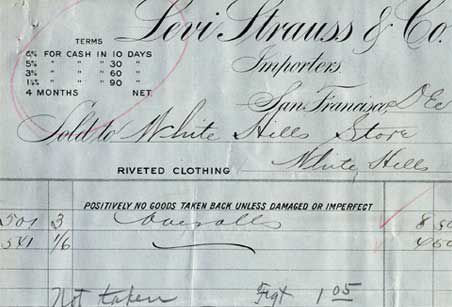 Levi Strauss & Co.
TERMS
6% FOR CASH IN 10 DAYS
5% " " " 30 "
3% " " " 60 "
" " " 90 "
4 MONTHS NET.
Importers.
San Francisco, Dec
Sold to White Hills Store
White Hills
RIVETED CLOTHING
POSITIVELY NO GOODS TAKEN BACK UNLESS DAMAGED OR IMPERFECT
501 3 Overalls 8 50
541 1/6 4 50
Not taken Frgt 1 05